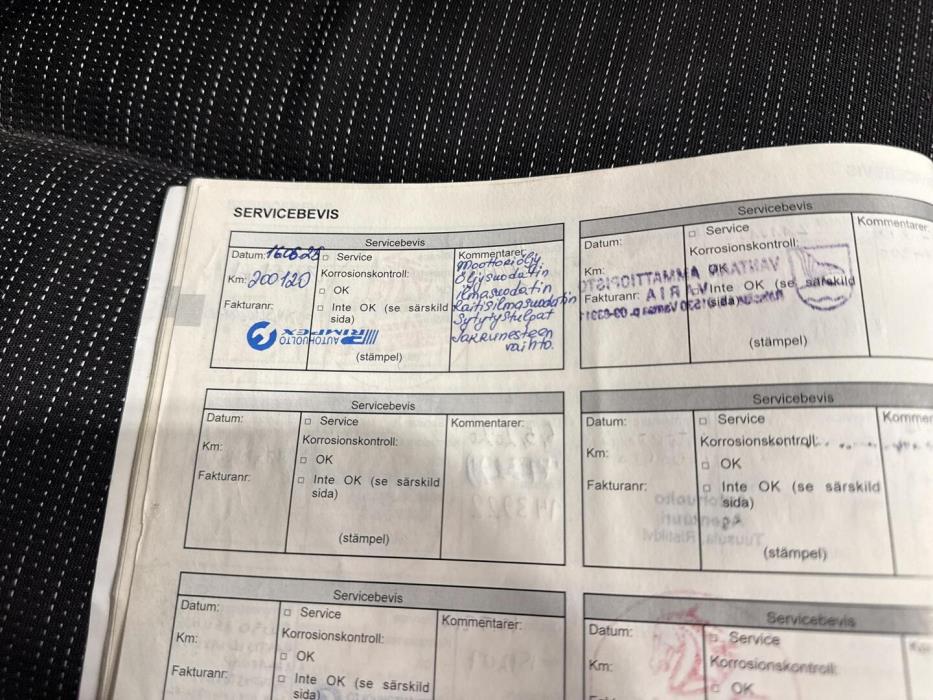 SERVICEBEVIS
Servicebevis
Datum:
Km: 200120
Fakturanr:
□ Service
Korrosionskontroll:
□ OK
□ Inte OK (se särskild
sida)
(stämpel)
AUTOHUOLTO
RIMPEX
Kommentarer:
Moottoriöljy
Öljysuodatin
ilmasuodatin
Raitisilmasuodatin
Sytytystulpat
Jarrunesteen
vaihto.
Servicebevis
Datum:
Km:
Fakturanr:
□ Service
Korrosionskontroll:
Inte OK (se särskild
sida)
(stämpel)
Kommentarer:
Servicebevis
Datum:
Km:
Fakturanr:
□ Service
Korrosionskontroll:
□ OK
□ Inte OK (se särskild
sida)
(stämpel)
Kommentarer:
Servicebevis
Datum:
Km:
Fakturanr:
□ Service
Korrosionskontroll:
□ OK
□ Inte OK (se särskild
sida)
(stämpel)
Kommer
Servicebevis
Datum:
Km:
Fakturanr:
□ Service
Korrosionskontroll:
□ OK
□ Inte OK (se särskild
sida)
Kommentarer:
Servicebevis
Datum:
Km:
□ Service
Korrosionskontroll:
□ OK